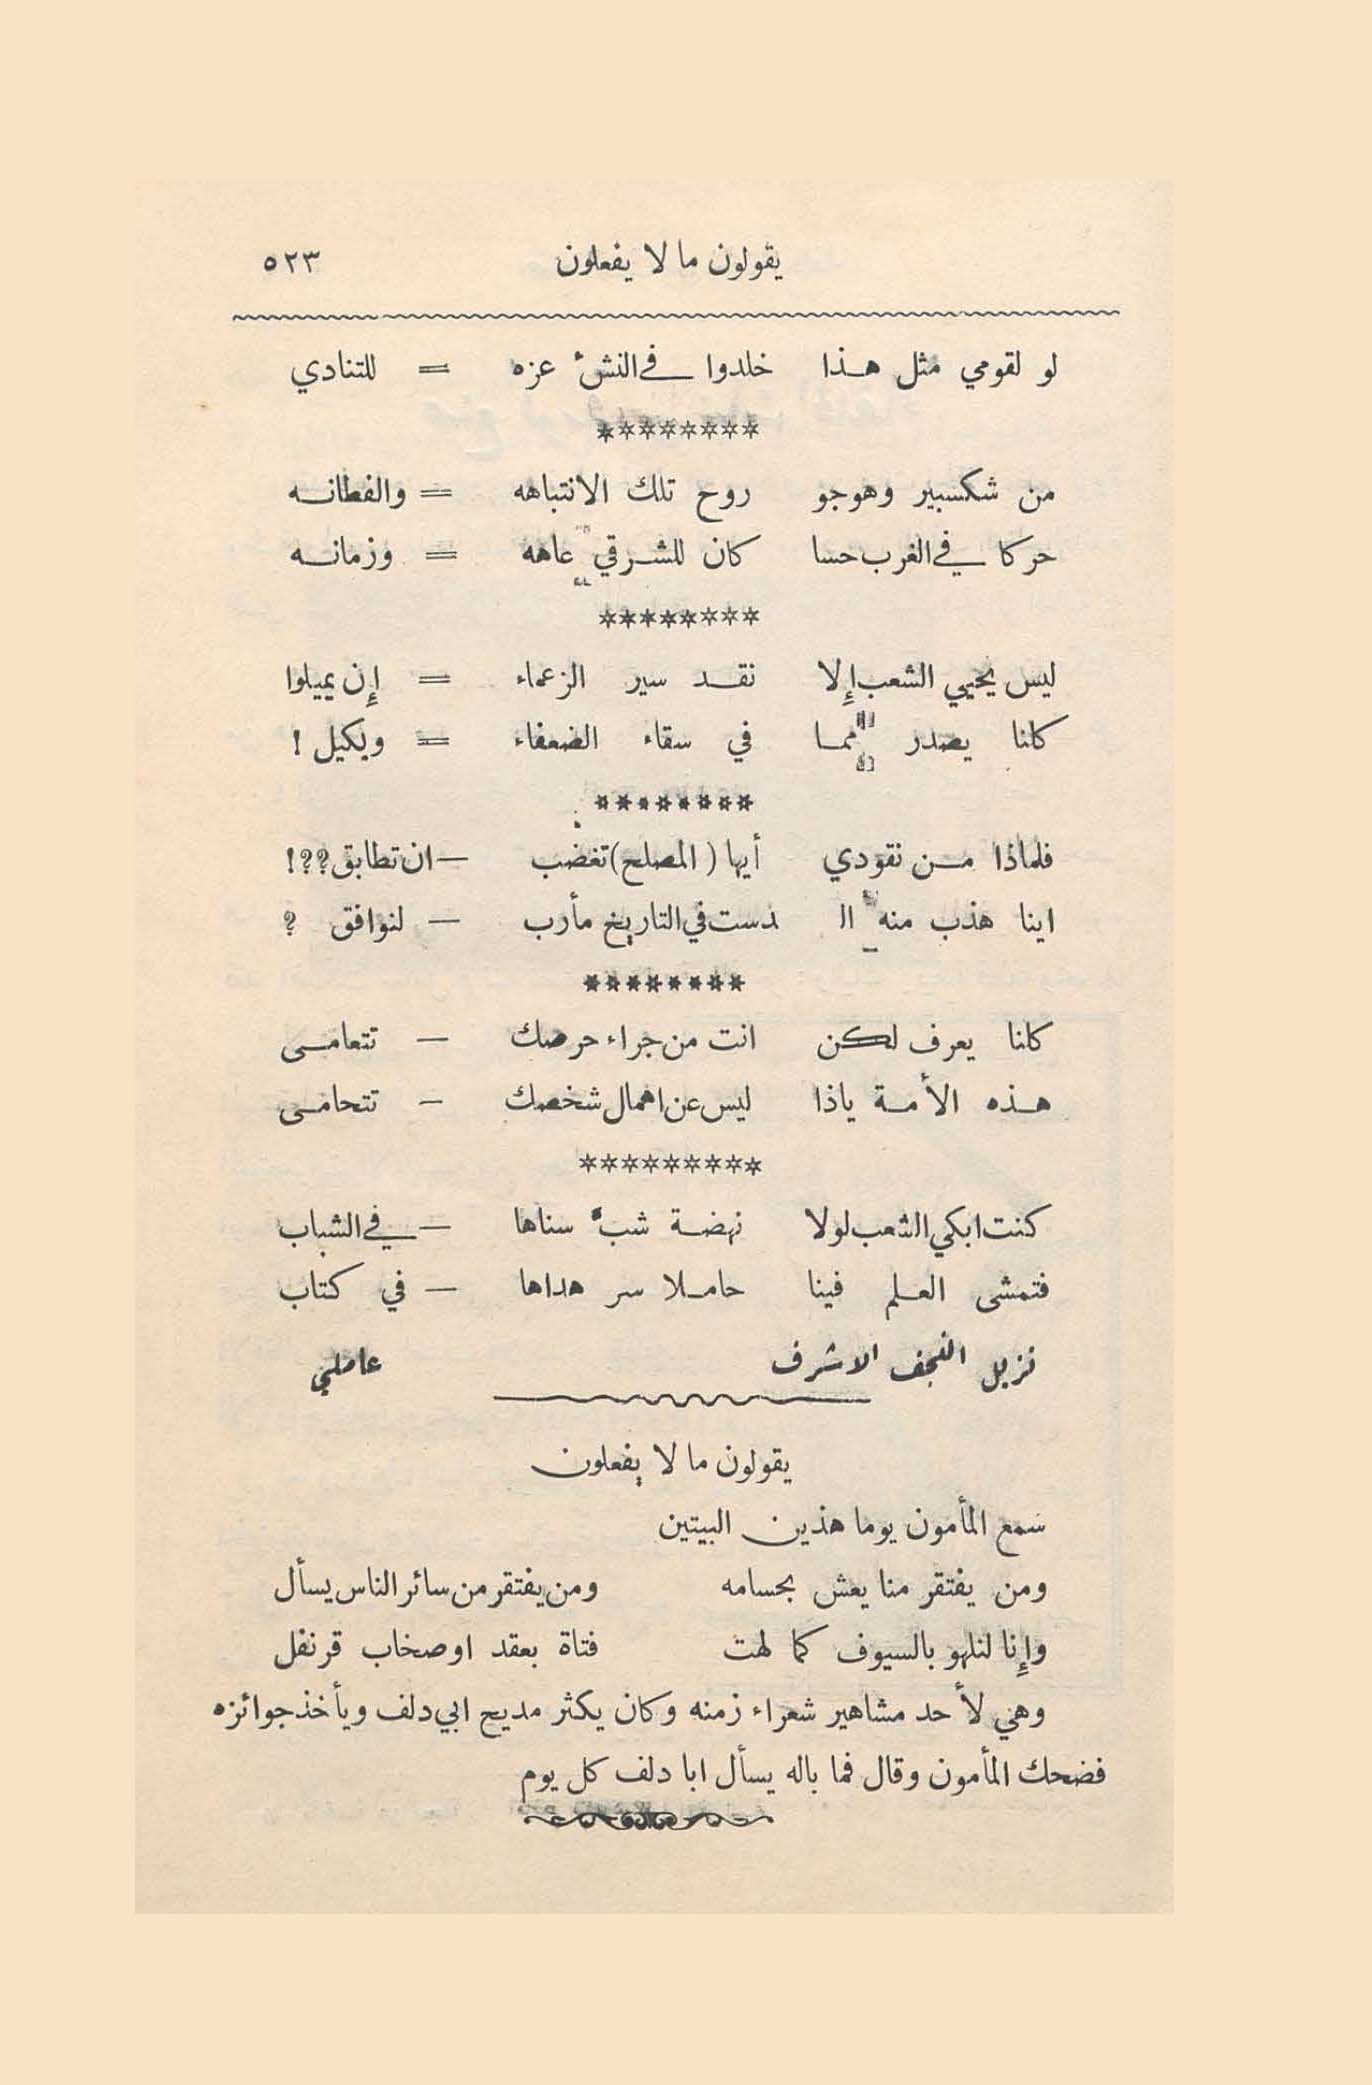 يقولون ما لا يفعلون ٥٢٣
لو لقومي مثل هـذا خلدوا في النشء عزه = للتنادي
********
من شكسبير وهوجو روح تلك الانتباهه = والفطانـه
حركا في الغرب حسا كان للشرقي عاهه = وزمانـه
********
ليس يحيي الشعب إلا نقـد سير الزعماء = إن يميلوا
كلنا يصدر ممـا في سقاء الضعفاء = ويكيل !
********
فلماذا مـن نقودي أيها ( المصلح ) تغضب — ان تطابق ؟؟!
اينا هذب منه الـ ـدست في التاريخ مأرب — لنوافق ؟
********
كلنا يعرف لكن انت من جراء حرصك — تتعامـى
هـذه الأمـة ياذا ليس عن اهمال شخصك — تتحامـى
*********
كنت ابكي الشعب لولا نهضـة شب سناها — في الشباب
فتمشى العـلم فينا حامـلا سر هداها — في كتاب
نزيل النجف الاشرف عاملي
يقولون ما لا يفعلون
سمع المأمون يوما هذين البيتين
ومن يفتقر منا يعش بحسامه ومن يفتقر من سائر الناس يسأل
وإنا لنلهو بالسيوف كما لهت فتاة بعقد او صخاب قرنفل
وهي لأحد مشاهير شعراء زمنه وكان يكثر مديح ابي دلف ويأخذ جوائزه
فضحك المأمون وقال فما باله يسأل ابا دلف كل يوم